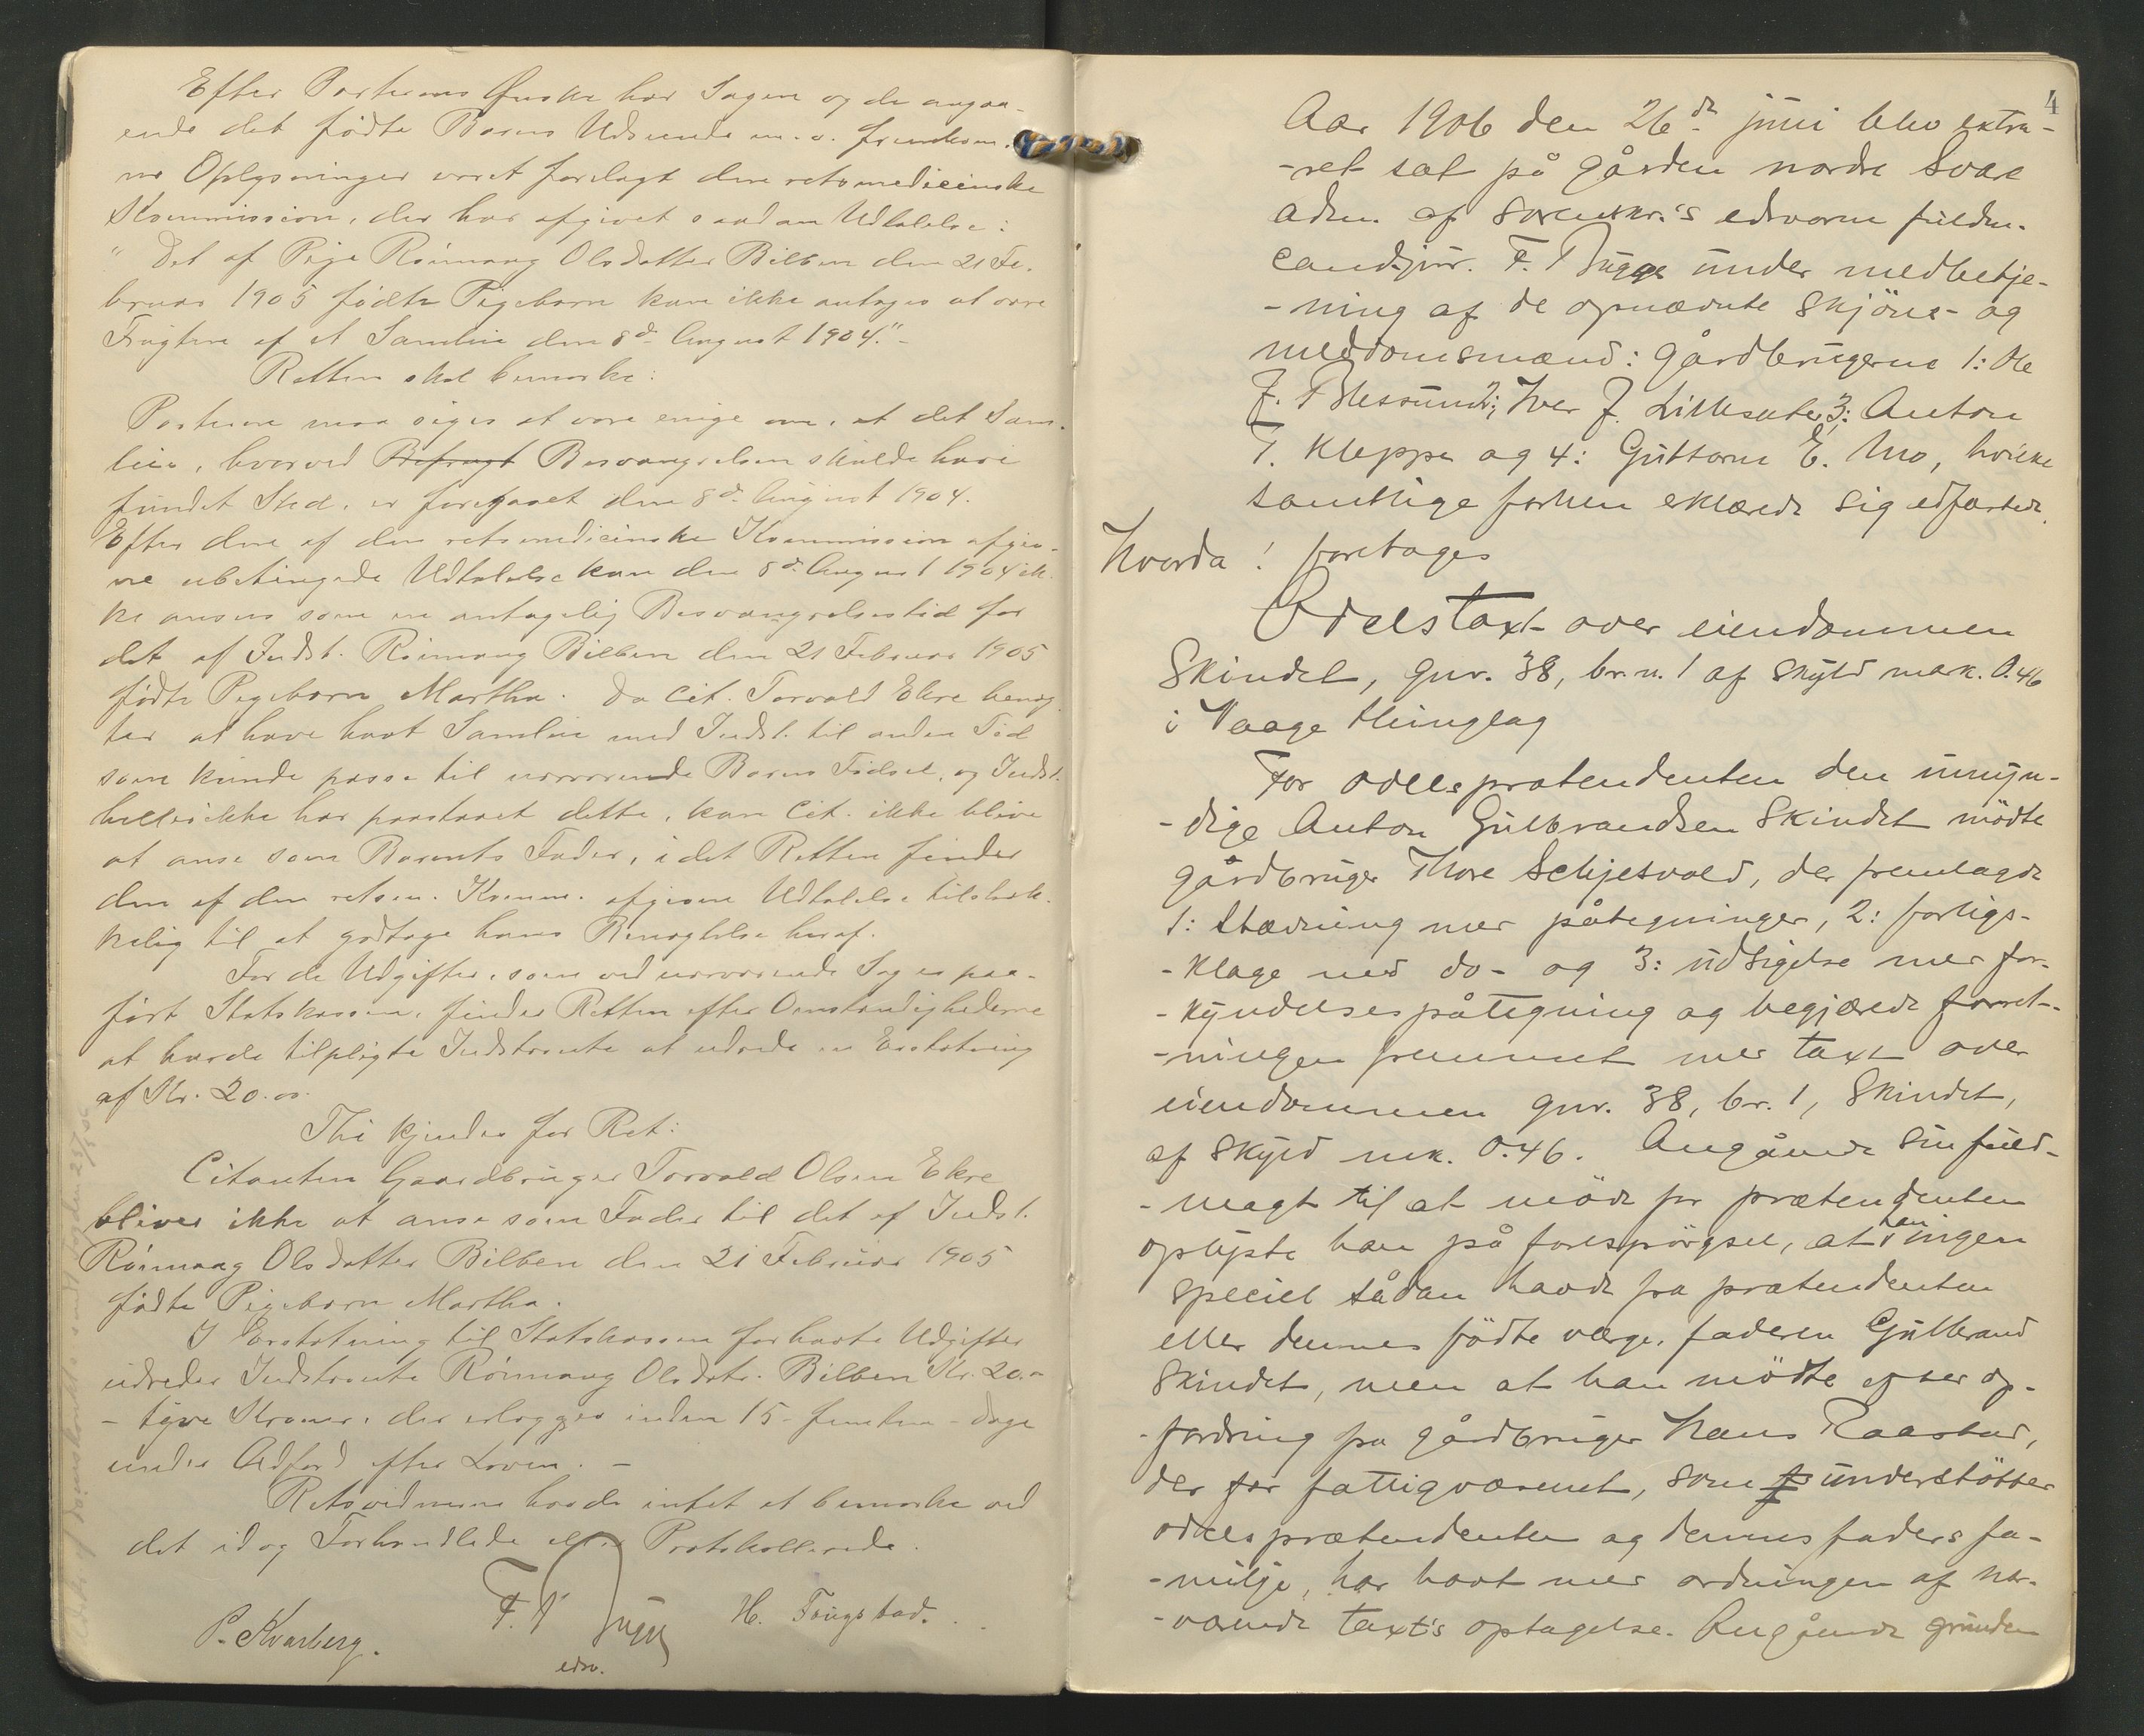 Efter Parternes Ønske har Sagen og de angaa-
ende det fødte Barns Udseende m. v. fremkom-
ne Oplysninger været forelagt den retsmedicinske
Kommission, der har afgivet saadan Udtalelse:
"Det af Pige Rønnaug Olsdatter Bilben den 21 Fe-
bruar 1905 fødte Pigebarn kan ikke antages at være
Frugten af et Samleie den 8de August 1904." -
Retten skal bemærke:
Parterne maa siges at være enige om, at det Sam-
leie, hvorved Befrugt Besvangrelsen skulde have
fundet Sted, er foregaaet den 8de August 1904.
Efter den af den retsmedicinske Kommission afgiv-
ne ubetingede Udtalelse kan den 8de August 1904 ik-
ke ansees som en antagelig Besvangrelsestid for
det af Indst. Rønnaug Bilben den 21 Februar 1905
fødte Pigebarn Martha. Da Cit. Torvald Ekre benæg-
ter at have havt Samleie med Indst. til anden Tid
som kunde passe til nærværende Barns Fødsel, og Indst.
heller ikke har paastaaet dette, kan Cit. ikke blive
at anse som Barnets Fader, idet Retten finder
den af den retsm. Komm. afgivne Udtalelse tilstræk-
kelig til at godtage hans Benægtelse heraf.
For de Udgifter, som ved nærværende Sag er paa-
ført Statskassen, finder Retten efter Omstændighederne
at burde tilpligte Indstævnte at udrede en Erstatning
af Kr. 20.00.
Thi kjendes for Ret:
Citanten Gaardbruger Torvald Olsen Ekre
bliver ikke at anse som Fader til det af Indst.
Rønnaug Olsdatter Bilben den 21 Februar 1905
fødte Pigebarn Martha.
I Erstatning til Statskassen for havte Udgifter
udreder Indstævnte Rønnaug Olsdtr. Bilben Kr. 20.-
- tyve Kroner, der erlægges inden 15 - femten - dage
under Adfærd efter Loven. -
Retsvidnerne havde intet at bemærke ved
det idag Forhandlede eller Protokollerede.
P. Kvarberg. F. Bugge H. Tougstad.
edsv.
4
Aar 1906 den 26de juni blev extra-
-ret sat på gården nordre Svare
adm. af sorenskr.'s edsvorne fuldm.
cand. jur. F. Bugge under medbetje-
-ning af de opnævnte skjöns- og
meddomsmænd: gårdbrugerne 1: Ole
J. Blessum, 2: Iver J. Lillesæter, 3: Anton
T. Kleppe og 4: Guttorm E. Mo, hvilke
samtlige forhen erklærede sig edfæstede.
Hvorda! foretages
Odelstaxt over eiendommen
Skindet, gnr. 38, br.n. 1 af skyld mark. 0.46
i Vaage thinglag
For odelsprætendenten den umyn-
-dige Anton Gulbrandsen Skindet mödte
gårdbruger Thore Schjesvold, der fremlagde
1: stævning med påtegninger, 2: forligs-
-klage med do- og 3: udsigelse med for-
-kyndelsespåtegning og begjærede forret-
-ningen fremmet med taxt over
eiendommen gnr. 38, br. 1, Skindet,
af skyld mk. 0.46. Angående sin fuld-
-magt til at möde for prætendenten
oplyste han på forespörgsel, at han ingen
speciel sådan havde fra prætendenten
eller dennes födte værge, faderen Gulbrand
Skindet, men at han mödte efter op-
-fordring fra gårdbruger Hans Raastad,
der for fattigvæsenet, som understötter
odelsprætendenten og dennes faders fa-
-milje, har havt med ordningen af nær-
-værende taxt's optagelse. Angående grunden